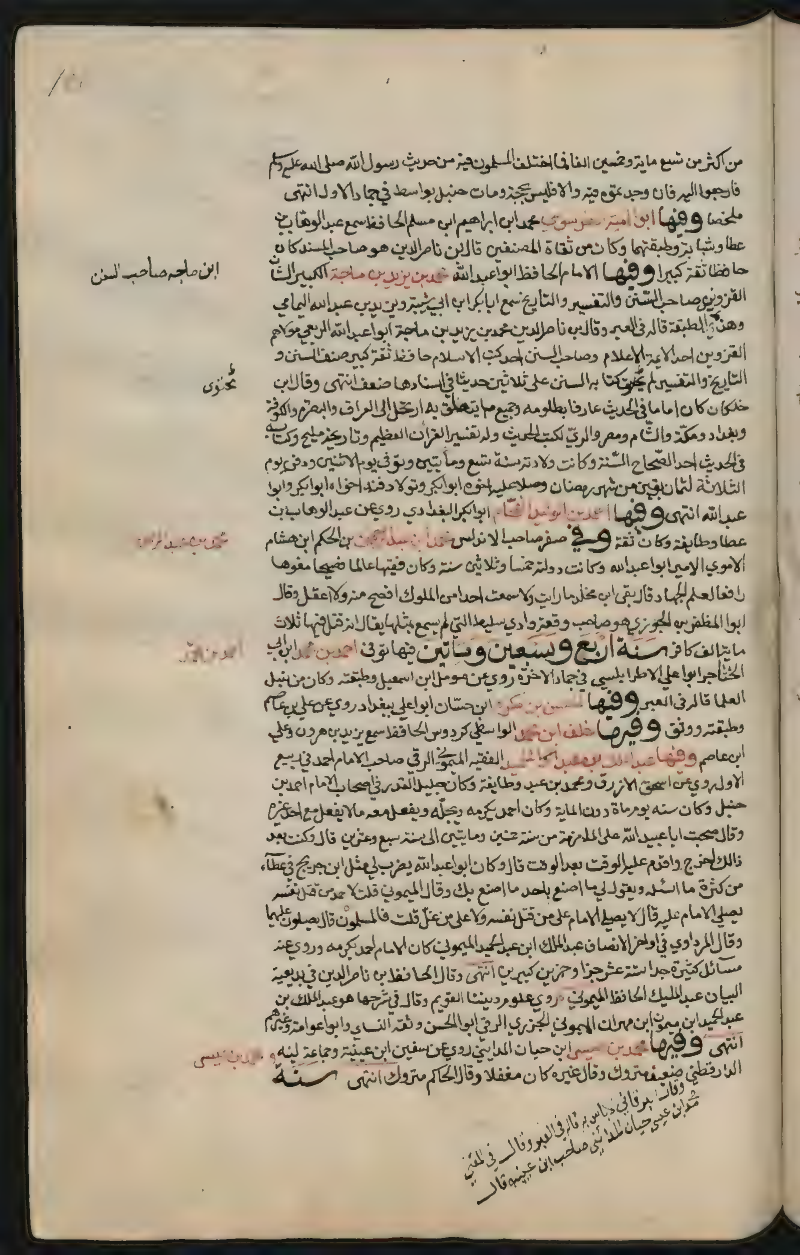 من اكثر من سبع ماية وخمسين الفا فما اختلف المسلمون فيه من حديث رسول الله صلى الله عليه وسلم
فارجعوا اليه فان وجدتموه فيه والا فليس بحجة ومات حنبل بواسط في جماد الاول انتهى
ملخصا وفيها ابو امية الطرسوسي محمد ابن ابراهيم ابن مسلم الحافظ سمع عبد الوهاب بن
عطا وشبابة وطبقتهما وكان من ثقاة المصنفين قال ابن ناصر الدين هو صاحب المسند كان
حافظا ثقة كبيرا وفيها الامام الحافظ ابو عبد الله محمد بن يزيد بن ماجة الكبير الشان
القزويني صاحب السنن والتفسير والتاريخ سمع ابا بكر ابن ابي شيبة ويزيد بن عبد الله اليمامي
وهذه الطبقة قاله في العبر وقال بن ناصر الدين محمد بن يزيد بن ماجة ابو عبد الله الربعي مولاهم
القزويني احد الايمة الاعلام وصاحب السنن احد كتب الاسلام حافظ ثقة كبير صنف السنن و
التاريخ والتفسير لم يحتوي كتابه السنن على ثلاثين حديثا في اسنادها ضعف انتهى وقال ابن
خلكان كان اماما في الحديث عارفا بعلومه وجميع ما يتعلق به ارتحل الى العراق والبصرة والكوفة
وبغداد ومكة والشام ومصر والري لكتب الحديث وله تفسير القرآن العظيم وتاريخ مليح وكتابه
في الحديث احد الصحاح الستة وكانت ولادته سنة تسع ومأيتين وتوفى يوم الاثنين ودفن يوم
الثلاثة لثمان بقين من شهر رمضان وصلا عليه اخوه ابو بكر وتولا دفنه اخواه ابو بكر وابو
عبد الله انتهى وفيها احمد بن الوليد الفحام ابو بكر البغدادي روي عن عبد الوهاب بن
عطا وطايفة وكان ثقة وفي صفر صاحب الاندلس محمد ابن عبد الرحمن بن الحكم ابن هشام
الاموي الامير ابو عبد الله وكانت دولته خمسا وثلاثين سنة وكان فقيها عالما فصيحا مفوها
رافعا لعلم الجهاد قال بقي ابن مخلد ما رايت ولا سمعت احدا من الملوك افصح منه ولا اعقل وقال
ابو المظفر بن الجوزي هو صاحب وقعة وادي سليط التي لم يسمع بمثلها يقال انه قتل فيها ثلاث
ماية الف كافر سنة اربع وسبعين ومأتين فيها توفى احمد بن محمد ابن ابي
الخناجر ابو علي الاطرابلسي في جماد الاخرة روي عن مومل ابن اسمعيل وطبقته وكان من نبل
العلما قاله في العبر وفيها الحسن بن مكرم ابن حسان ابو علي ببغداد روي عن علي بن عاصم
وطبقته ووثق وفيها خلف ابن محمد الواسطي كردوس الحافظ سمع يزيد بن هرون وعلي
ابن عاصم وفيها عبد الملك بن عبد الحميد الفقيه الميموني الرقي صاحب الامام احمد في ربيع
الاول روي عن اسحق الازرق ومحمد بن عبيد وطايفة وكان جليل القدر في اصحاب الامام احمد بن
حنبل وكان سنه يوم مات دون الماية وكان احمد يكرمه ويجله ويفعل معه مالا يفعل مع احد غيره
وقال صحبت ابا عبيد الله على الملازمة من سنة خمس ومايتين الى سنة سبع وعشرين قال وكنت بعد
ذالك اخرج واقدم عليه الوقت بعد الوقت قال وكان ابو عبد الله يضرب لي مثل ابن جريج في عطاء
من كثرة ما اسئله ويقول لي ما اصنع باحد ما اصنع بك وقال الميموني قلت لاحمد من قتل نفسه
يصلي الامام عليه قال لا يصلي الامام على من قتل نفسه ولا على من غل قلت فالمسلمون قال يصلون عليهما
وقال المرداوي في اواخر الانصاف عبد الملك ابن عبد الحميد الميموني كان الامام احمد يكرمه وروي عنه
مسائل كثيرة جدا ستة عشر جزا وجزين كبيرين انتهى وقال الحافظ بن ناصر الدين في بديعية
البيان عبد المليك الحافظ الميموني روي علوم ديننا القويم وقال في شرحها هو عبد الملك بن
عبد الحميد ابن ميمون ابن مهران الميموني الجزري الرقي ابو الحسن وثقه النساي وابو عوانة وغيرهم
انتهى وفيها محمد بن عيسى ابن حيان المدايني روي عن سفين ابن عيينة وجماعة لينه
الدارقطني ضعيف متروك وقال غيره كان مغفلا وقال الحاكم متروك انتهى سنة
وقال البرقاني لا باس به قاله في العبر وقال في المغني
محمد ابن عيسى حيان المدائني صاحب ابن عيينه قال
ابن ماجه صاحب السنن
يحتوى
محمد بن عبد الرحمن
احمد بن محمد
محمد بن عيسى